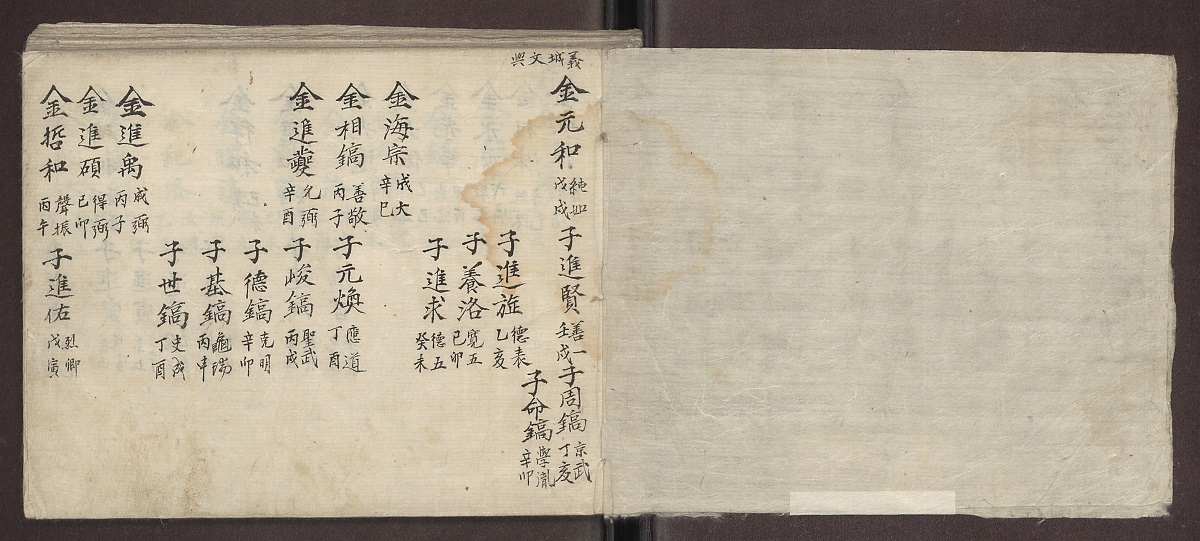 義城文興
金元和 純如 戊戌
子進賢 善一 壬戌
子周鎬 京武 丁亥
子命鎬 學胤 辛卯
子進旋 德表 乙亥
子養洛 寬五 己卯
子進求 德五 癸未
金海宗 成大 辛巳
金相鎬 善敬 丙子
子元煥 應道 丁酉
金進夔 允弼 辛酉
子峻鎬 聖武 丙戌
子德鎬 克明 辛卯
子基鎬 龜瑞 丙申
子世鎬 史成 丁酉
金進禹 成弼 丙子
金進碩 得弼 己卯
金哲和 聲振 丙午
子進佑 烈卿 戊寅